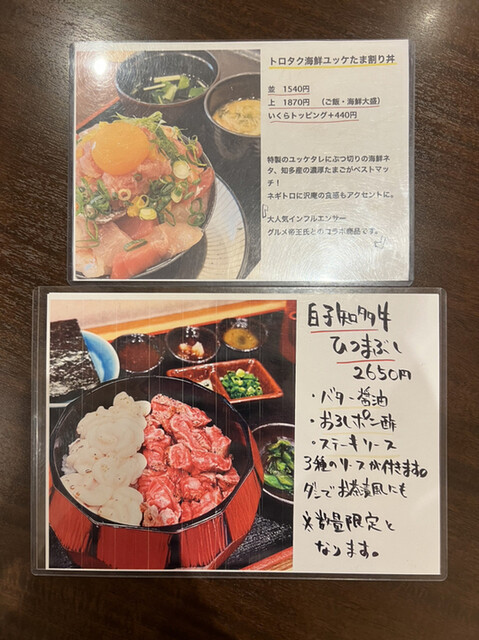 トロタク海鮮ユッケたま割り丼
並 1540円
上 1870円 (ご飯・海鮮大盛)
いくらトッピング+440円
特製のユッケタレにぶつ切りの海鮮ネ
タ、知多産の濃厚たまごがベストマッ
チ!
ネギトロに沢庵の食感もアクセントに。
大人気インフルエンサー
グルメ帝王氏とのコラボ商品です。
白子知多牛
ひつまぶし
2650円
・バター醤油
・おろしポン酢
・ステーキソース
3種のソースが付きます。
ダシでお茶漬風にも
※数量限定と
なります。